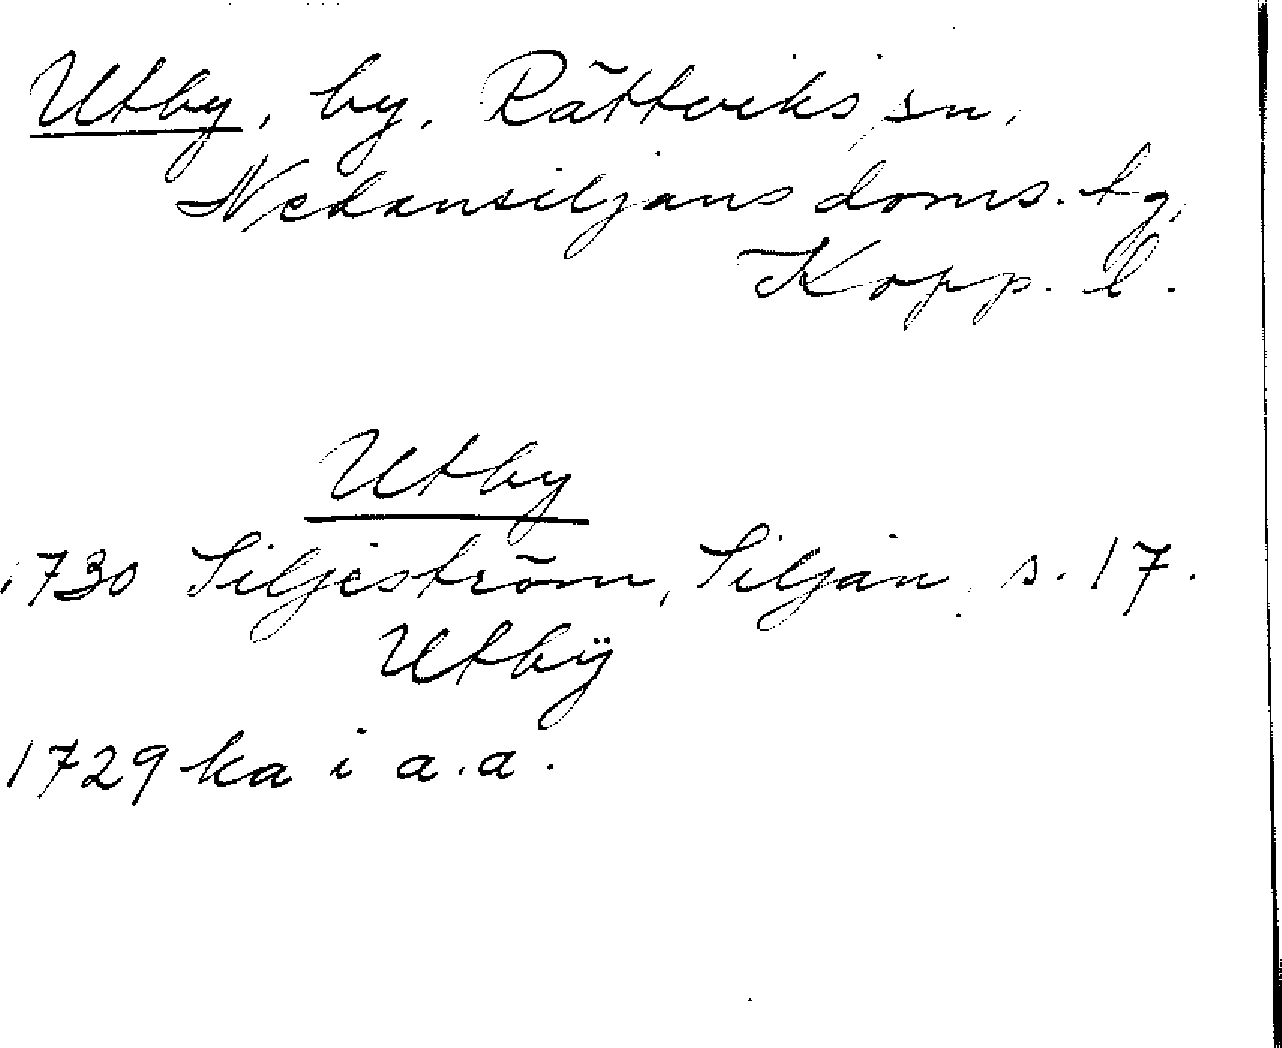 Utby, by, Rättviks sn,
Nedansiljans doms. tg,
Kopp. l.
Utby
1730 Siljeström, Siljan, s. 17.
Utbÿ
1729 ka i a.a.